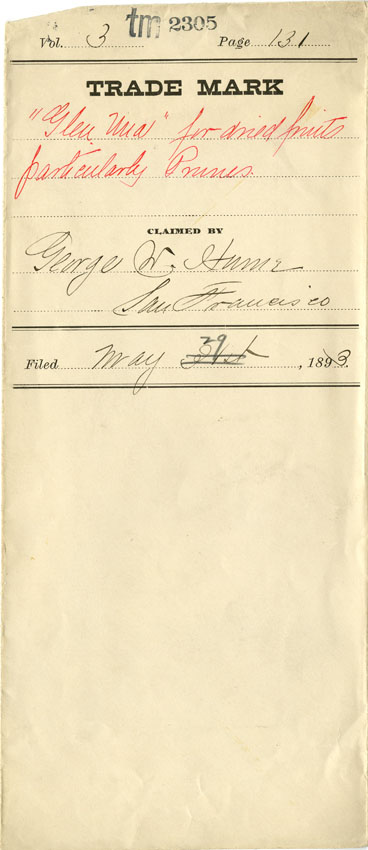 Vol. 3 tm 2305 Page 131
TRADE MARK
"Glen Una" for dried fruits
particularly Prunes
CLAIMED BY
George W. Hume
San Francisco
Filed May 29 31st, 1893.